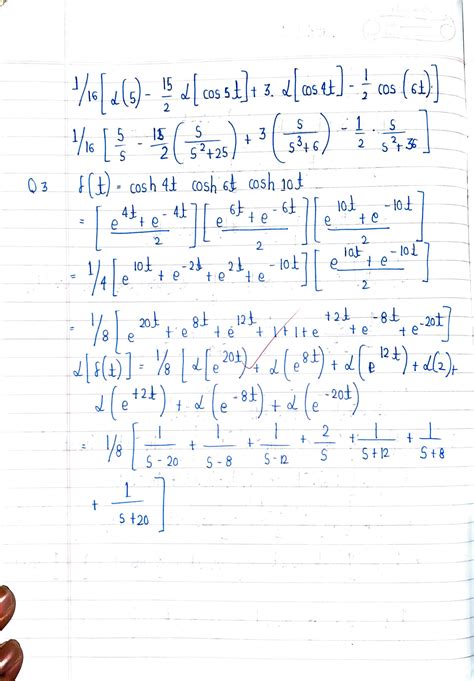 1/16 [ L(5) - 15/2 L[cos 5t] + 3. L[cos 4t] - 1/2 cos (6t) ]
1/16 [ 5/s - 15/2 ( s/s²+25 ) + 3 ( s/s³+6 ) - 1/2 . s/s²+36 ]
Q3 f(t) = cosh 4t cosh 6t cosh 10t
= [ e^4t + e^-4t / 2 ] [ e^6t + e^-6t / 2 ] [ e^10t + e^-10t / 2 ]
= 1/4 [ e^10t + e^-2t + e^2t + e^-10t ] [ e^10t + e^-10t / 2 ]
= 1/8 [ e^20t + e^8t + e^12t + 1 + 1 + e^+2t + e^-8t + e^-20t ]
L[f(t)] = 1/8 [ L[e^20t) + L(e^8t) + L(e^12t) + L(2) +
L(e^+2t) + L(e^-8t) + L(e^-20t)
= 1/8 [ 1/s-20 + 1/s-8 + 1/s-12 + 2/s + 1/s+12 + 1/s+8
+ 1/s+20 ]